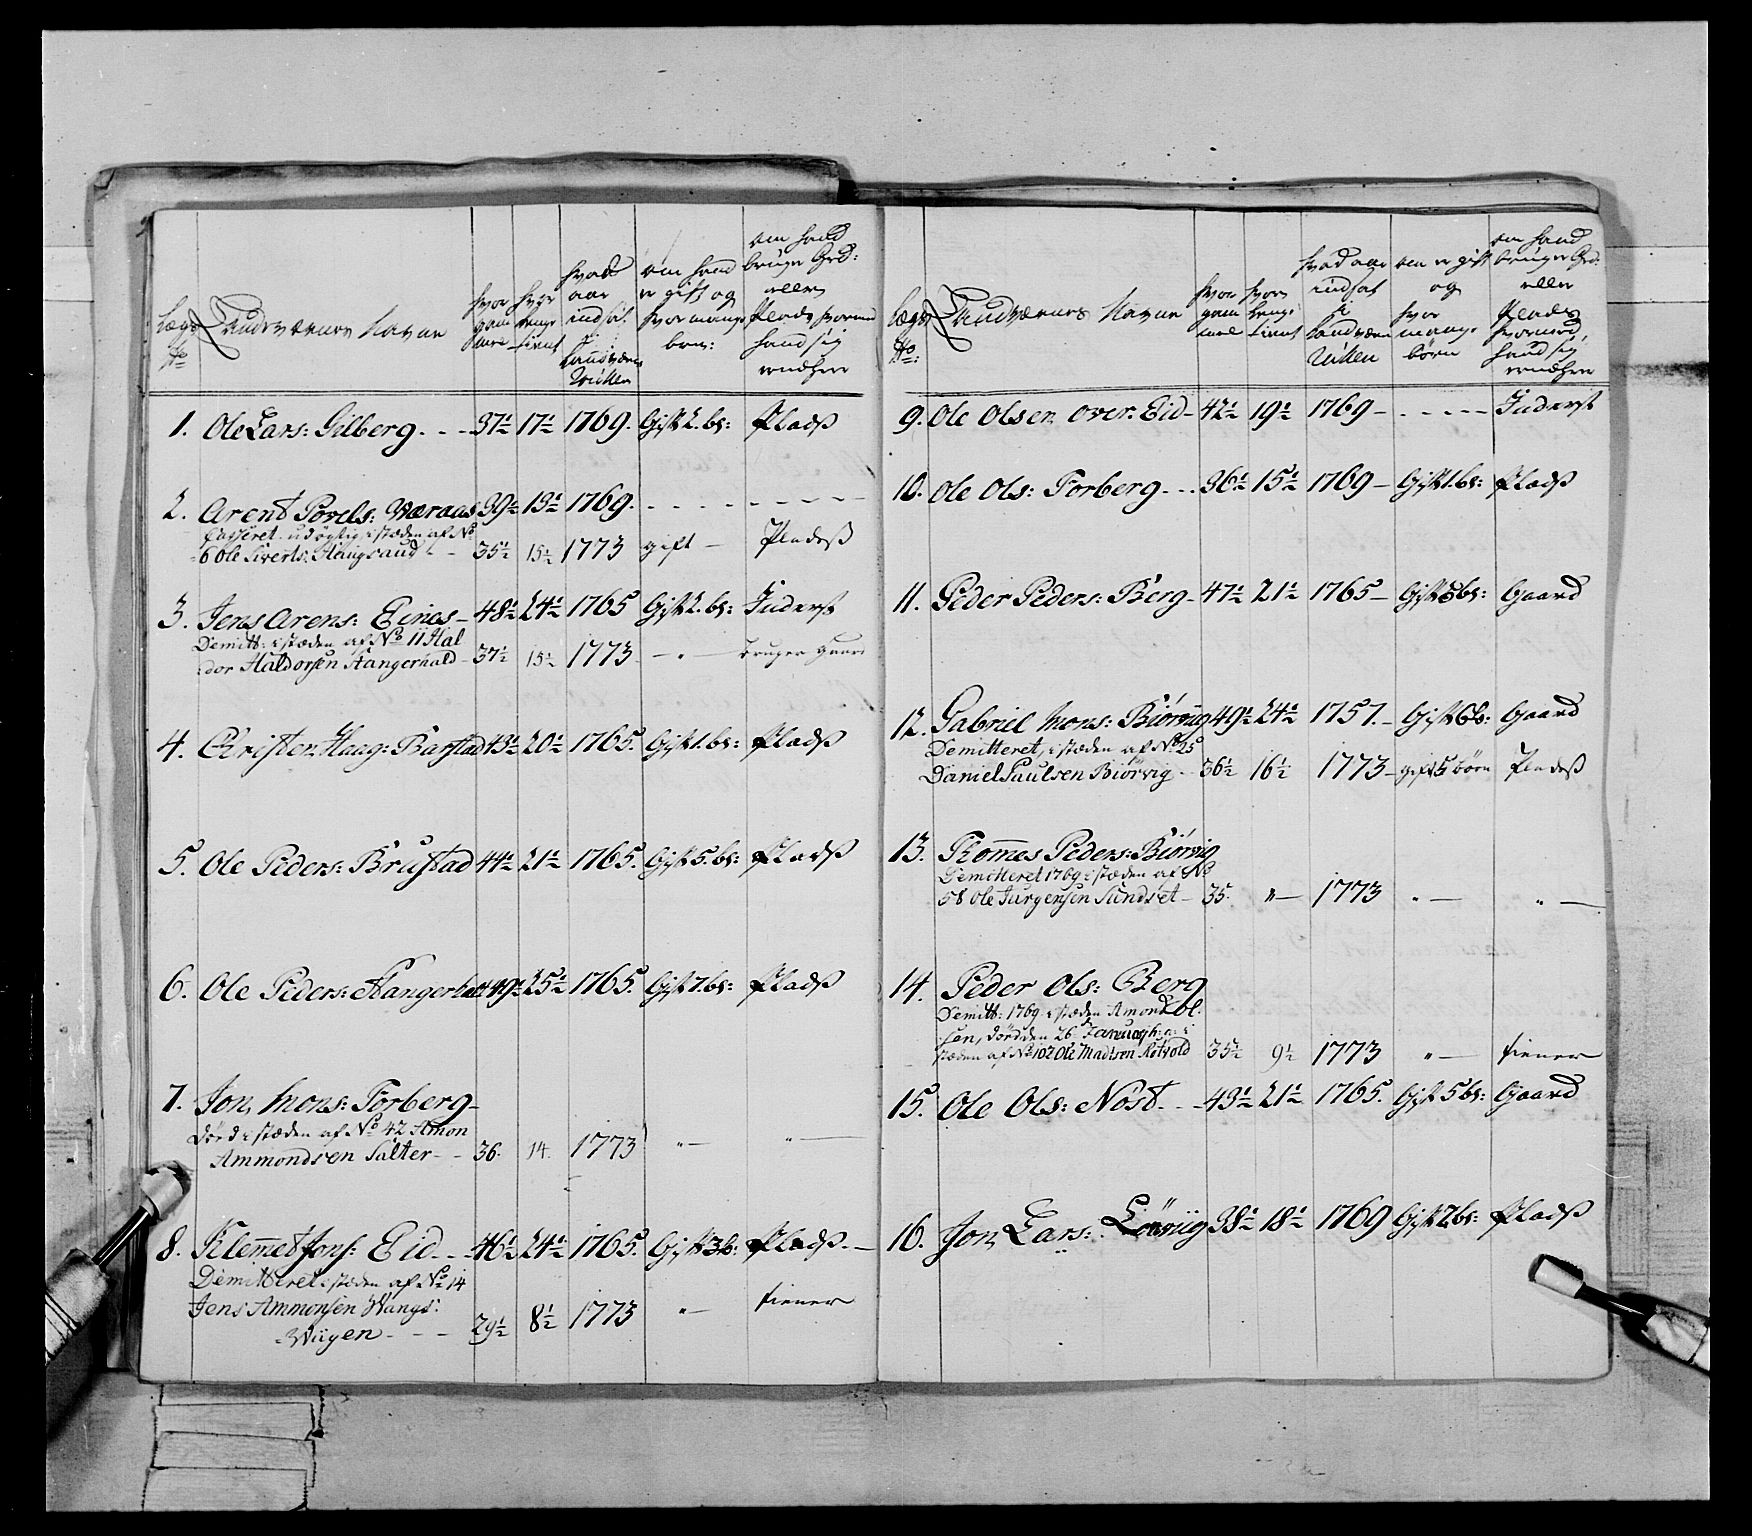 Lægs No
Landværnes Navne
hvor gam mel
hvor lenge tient
hvad aar indsat i Landværns Rullen
om hand er gift og hvor mange børn:
om hand bruger Grd: eller Plads hvormed hand sig ernæhrer
1. Ole Lars: Gilberg . . . 37½ 17½ 1769. Gift 2. br: Pladß
2. Arent Povels: Weraas 39½ 13½ 1769. . . . . . - - - - -
Casseret udögtig i stæden af No
6 Ole Siverts: Haugsaud - - 35½ 15½ 1773 gift — Pladß
3. Jens Arens: Eines - 48½ 24½ 1765 Gift 2. br: Inderst
Demitt: i stæden af No 11 Hal
dor Haldorsen Hangerhald - 37½ 15½ 1773. — " — bruger Gaard
4. Christen Haag: Barstad 43½ 20½ 1765. Gift 1. br: Pladß
5. Ole Peders: Brustad 44½ 21½ 1765. Gift 5. br: Pladß
6. Ole Peders: Hangerhalt 49½ 25½ 1765. Gift 7. br: Pladß
7. Jon Mons: Forberg -
dörd i stæden af No 42 Amon
Ammondsen Salter - - 36. 14. 1773 " — " —
8. Klemmet Jons: Eid . . - 46½ 24½ 1765. Gift 3 b: Pladß. —
Demitteret i stæden af No 14
Jens Ammonsen Wangs:
Wiigen - - - 29½ 8½ 1773 " — tiener
Lægs No:
Landværnes Navne
hvor gam mel
hvor lenge tient
hvad aar indsat i Landværn Rullen
om er gift og hvor mange børn
om hand bruger Grd: eller Plads hvormed hand sig ernæhrer
9. Ole Olsen over. Eid - 42½ 19½ 1769 - . - - - - Inderst
10. Ole Ols: Forberg . . . 36½ 15½ 1769 — Gift 1. br: Pladß
11. Peder Peders: Berg - 47½ 21½ 1765 — Gift 5 br: Gaard
12. Gabriel Mons: Biörvig 49½ 24½ 1757. — Gift 6 b: Gaard
Demitteret, i stæden af No 25
Daniel Paulsen Biörvig - - 36½ 16½ 1773 — gift 5 börn Pladß
13. Thommes Peders: Biörvig
Demitteret 1769 i stæden af No
58 Ole Jurgensen Sundset - 35. " — 1773 " — " —
14. Peder Ols: Berg
Demitt: 1769 i stæden Amond Ol:
sen, dörd den 26 Januagh: a: i
stæden af No 102 Ole Madtsen Rotvold 35½ 9½ 1773 " — tiener
15. Ole Ols: Nöst . . - 43½ 21½ 1765. Gift 5 br: Gaard
16. Jon Lars: Löviig 38½ 18½ 1769 Gift 2 br: Pladß